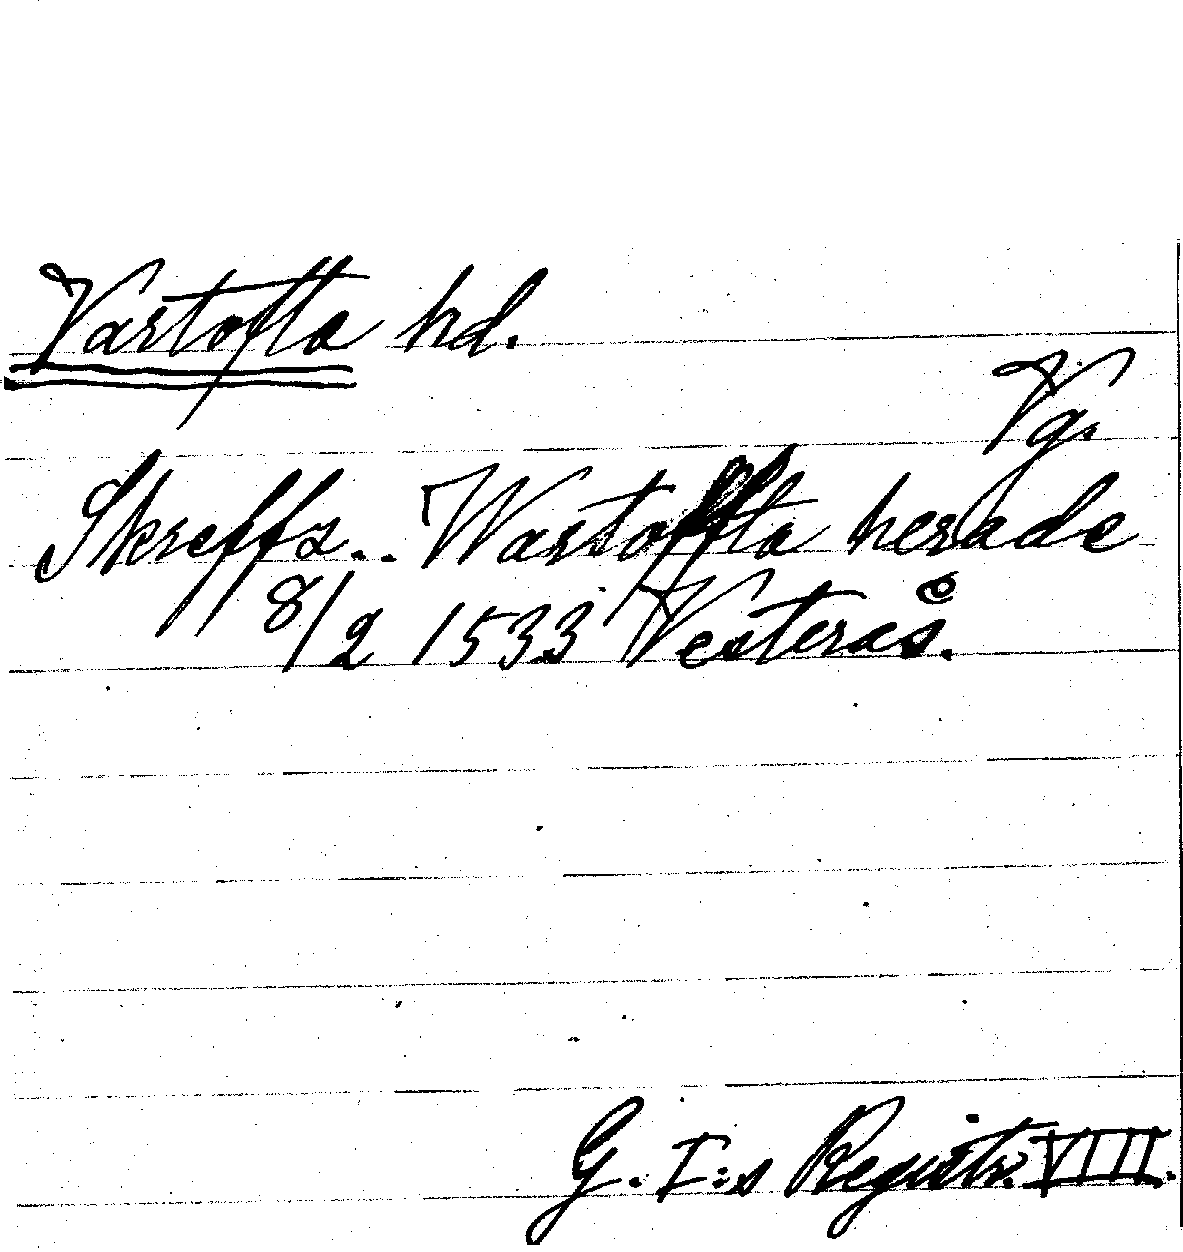 Vartofta hd.
Vg.
Skreffz.. Wartoffta herade
8/2 1533 Vesterås.
G. I:s Registr. VIII.